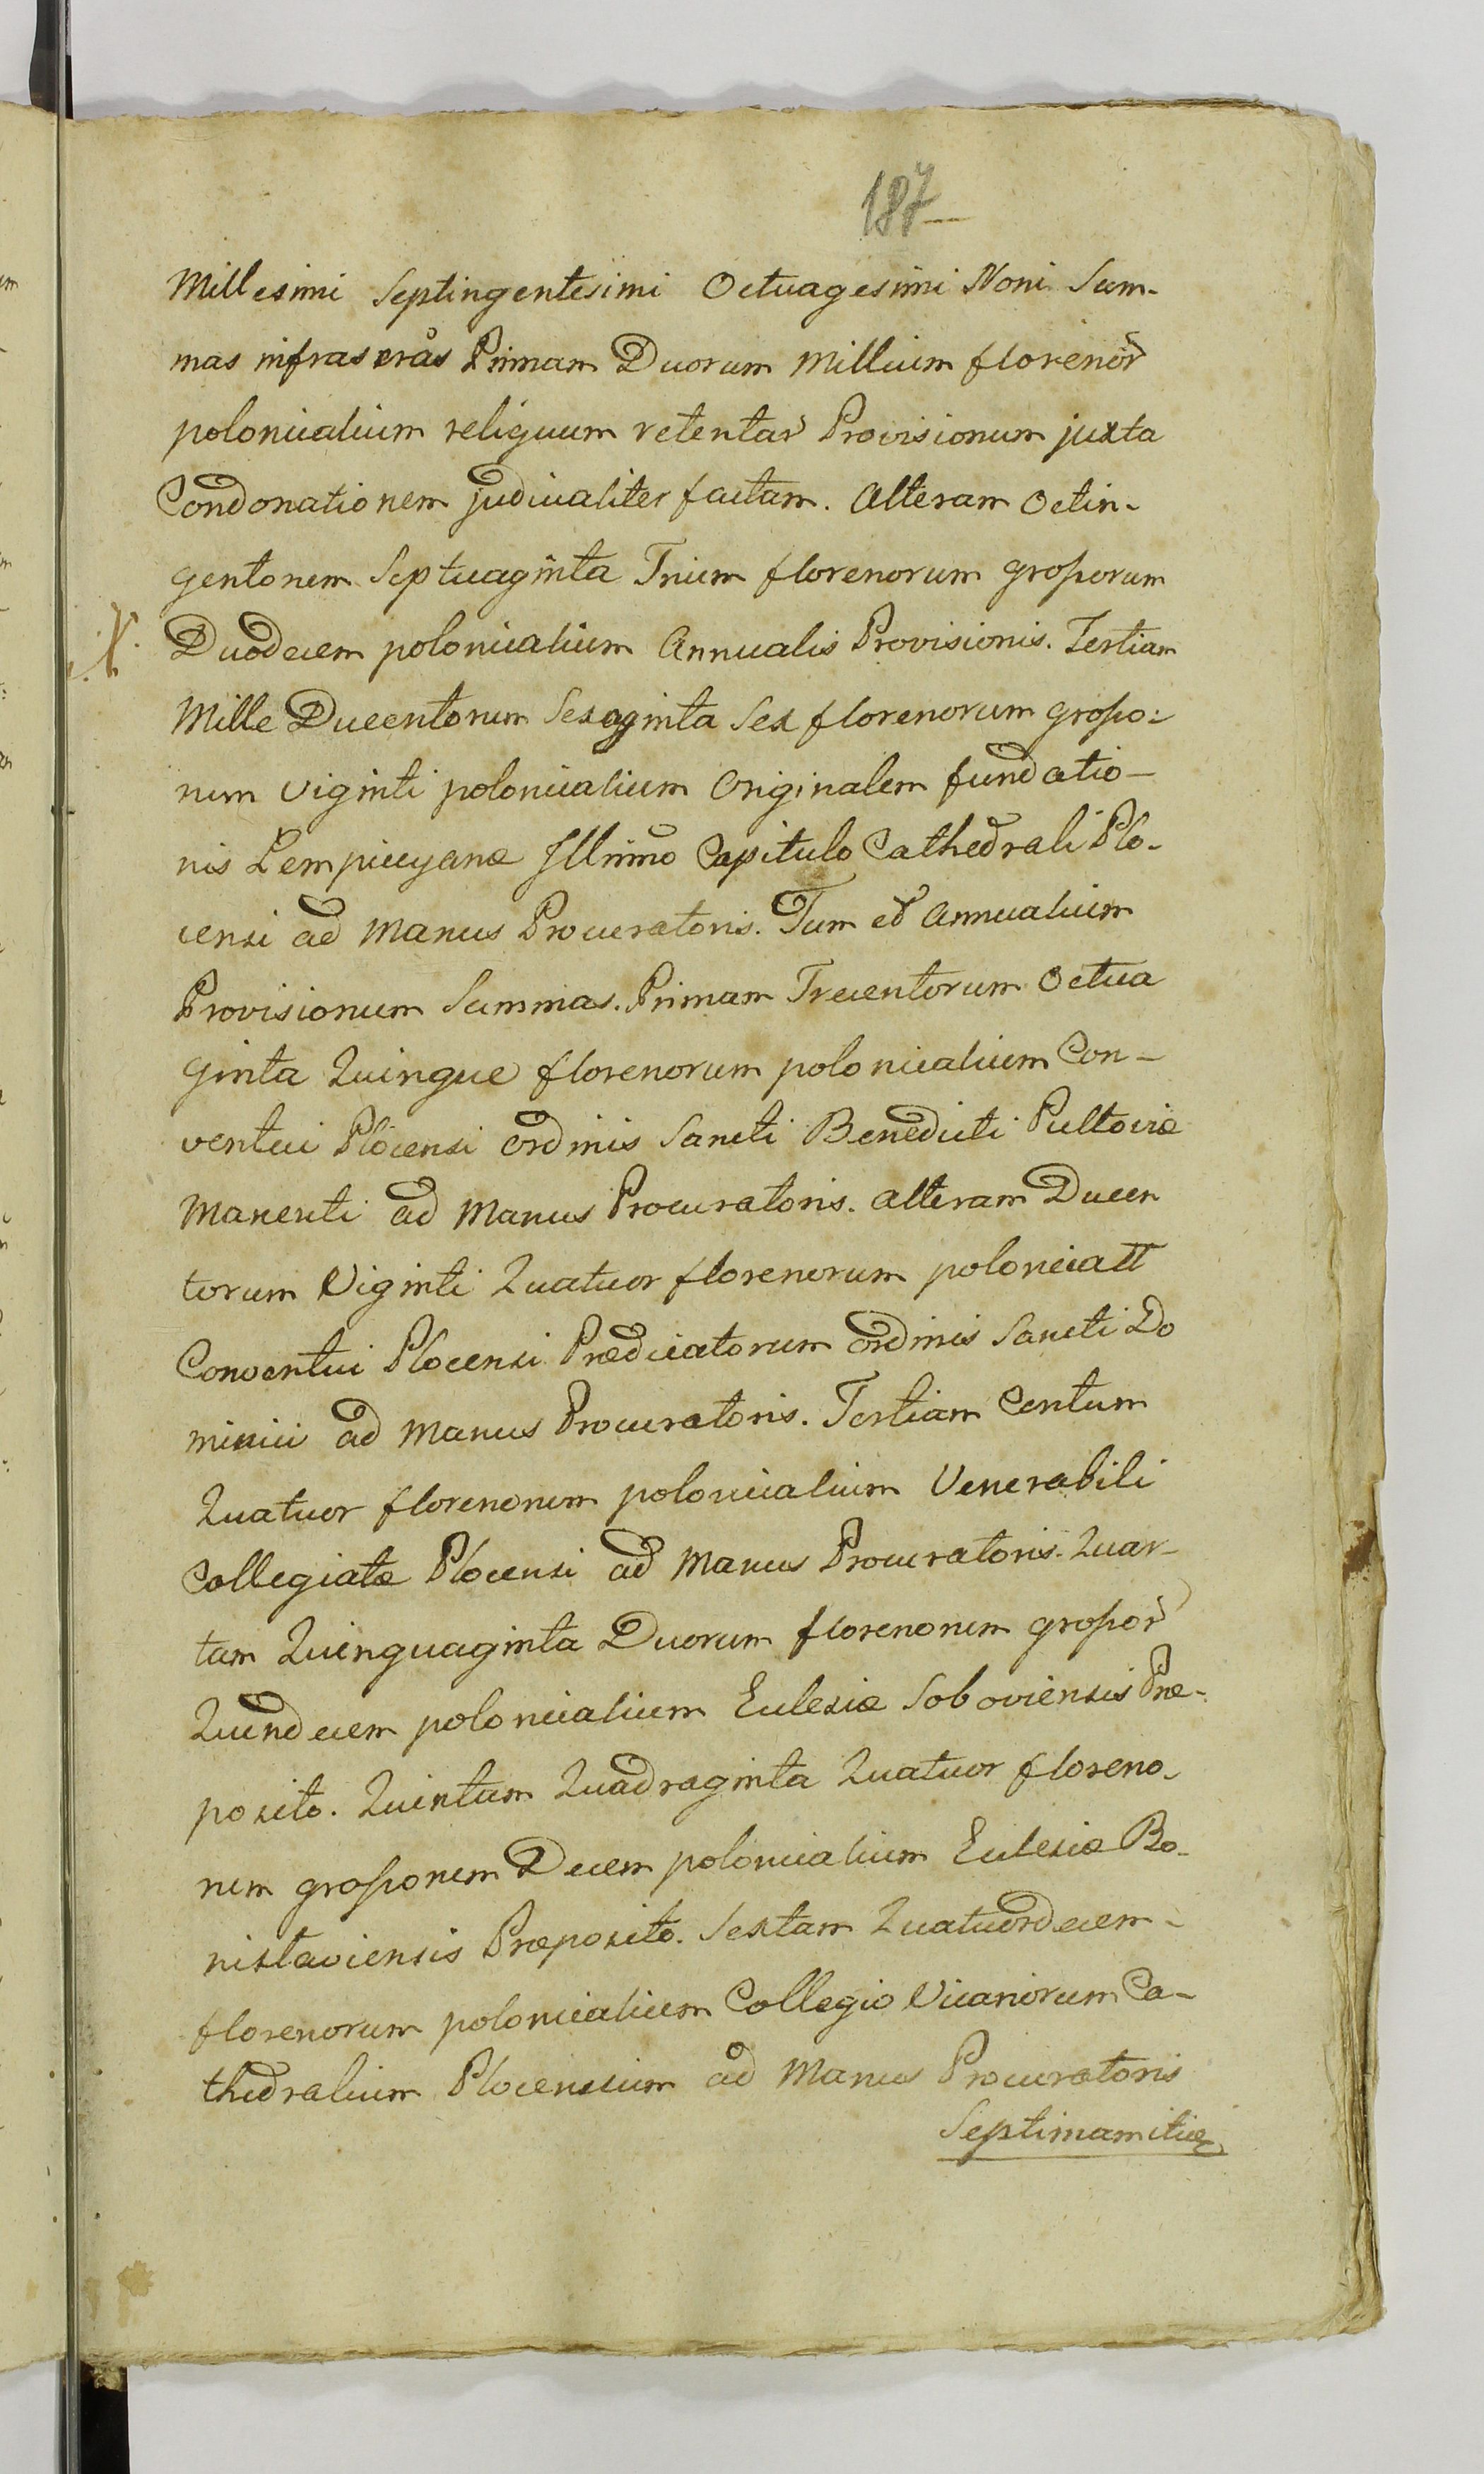 187
Millesimi Septingentesimi Octuagesimi Noni Sum-
mas infrascrãs Primam Duorum Millium florenor̃
polonicalium reliquum retentar̃ Provisionum juxta
Condonationem judicialiter factam. Alteram Octin-
gentorum Septuaginta Trium florenorum grossorum
Duodecem polonicalium Annualis Provisionis. Tertiam
Mille Ducentorum Sexaginta Sex florenorum grosso-
rum Viginti polonicalium Originalem fundatio-
nis Lempicyanæ Illrimo Capitulo Cathedrali Plo-
censi ad Manus Procuratoris. Tum et Annualium
Provisionum Summas. Primam Trecentorum Octua
ginta Quinque florenorum polonicalium Con-
ventui Plocensi Ordinis Sancti Benedicti Pultoviæ
Manenti ad Manus Procuratoris. Alteram Ducen
torum Viginti Quatuor florenorum polonicall
Conventui Plocensi Prædicatorum Ordinis Sancti Do
minici ad Manus Procuratoris. Tertiam Centum
Quatuor florenorum polonicalium Venerabili
Collegiatæ Plocensi ad Manus Procuratoris. Quar-
tam Quinquaginta Duorum florenorum grossor̃
Quindecem polonicalium Ecclesiæ Soboviensis Præ-
posito. Quintam Quadraginta Quatuor floreno-
rum grossorum Decem polonicalium Ecclesiæ Bo-
nislaviensis Præposito. Sextam Quatuordecem-
florenorum polonicalium Collegio Vicariorum Ca-
thedralium Plocensium ad Manus Procuratoris
Septimam itide